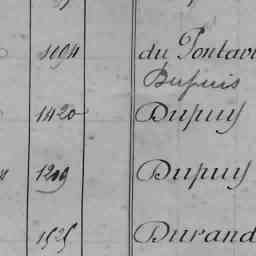 1094 du Pontavi
Dupuis
1420 Dupuy
1209 Dupuy
1525 Durand